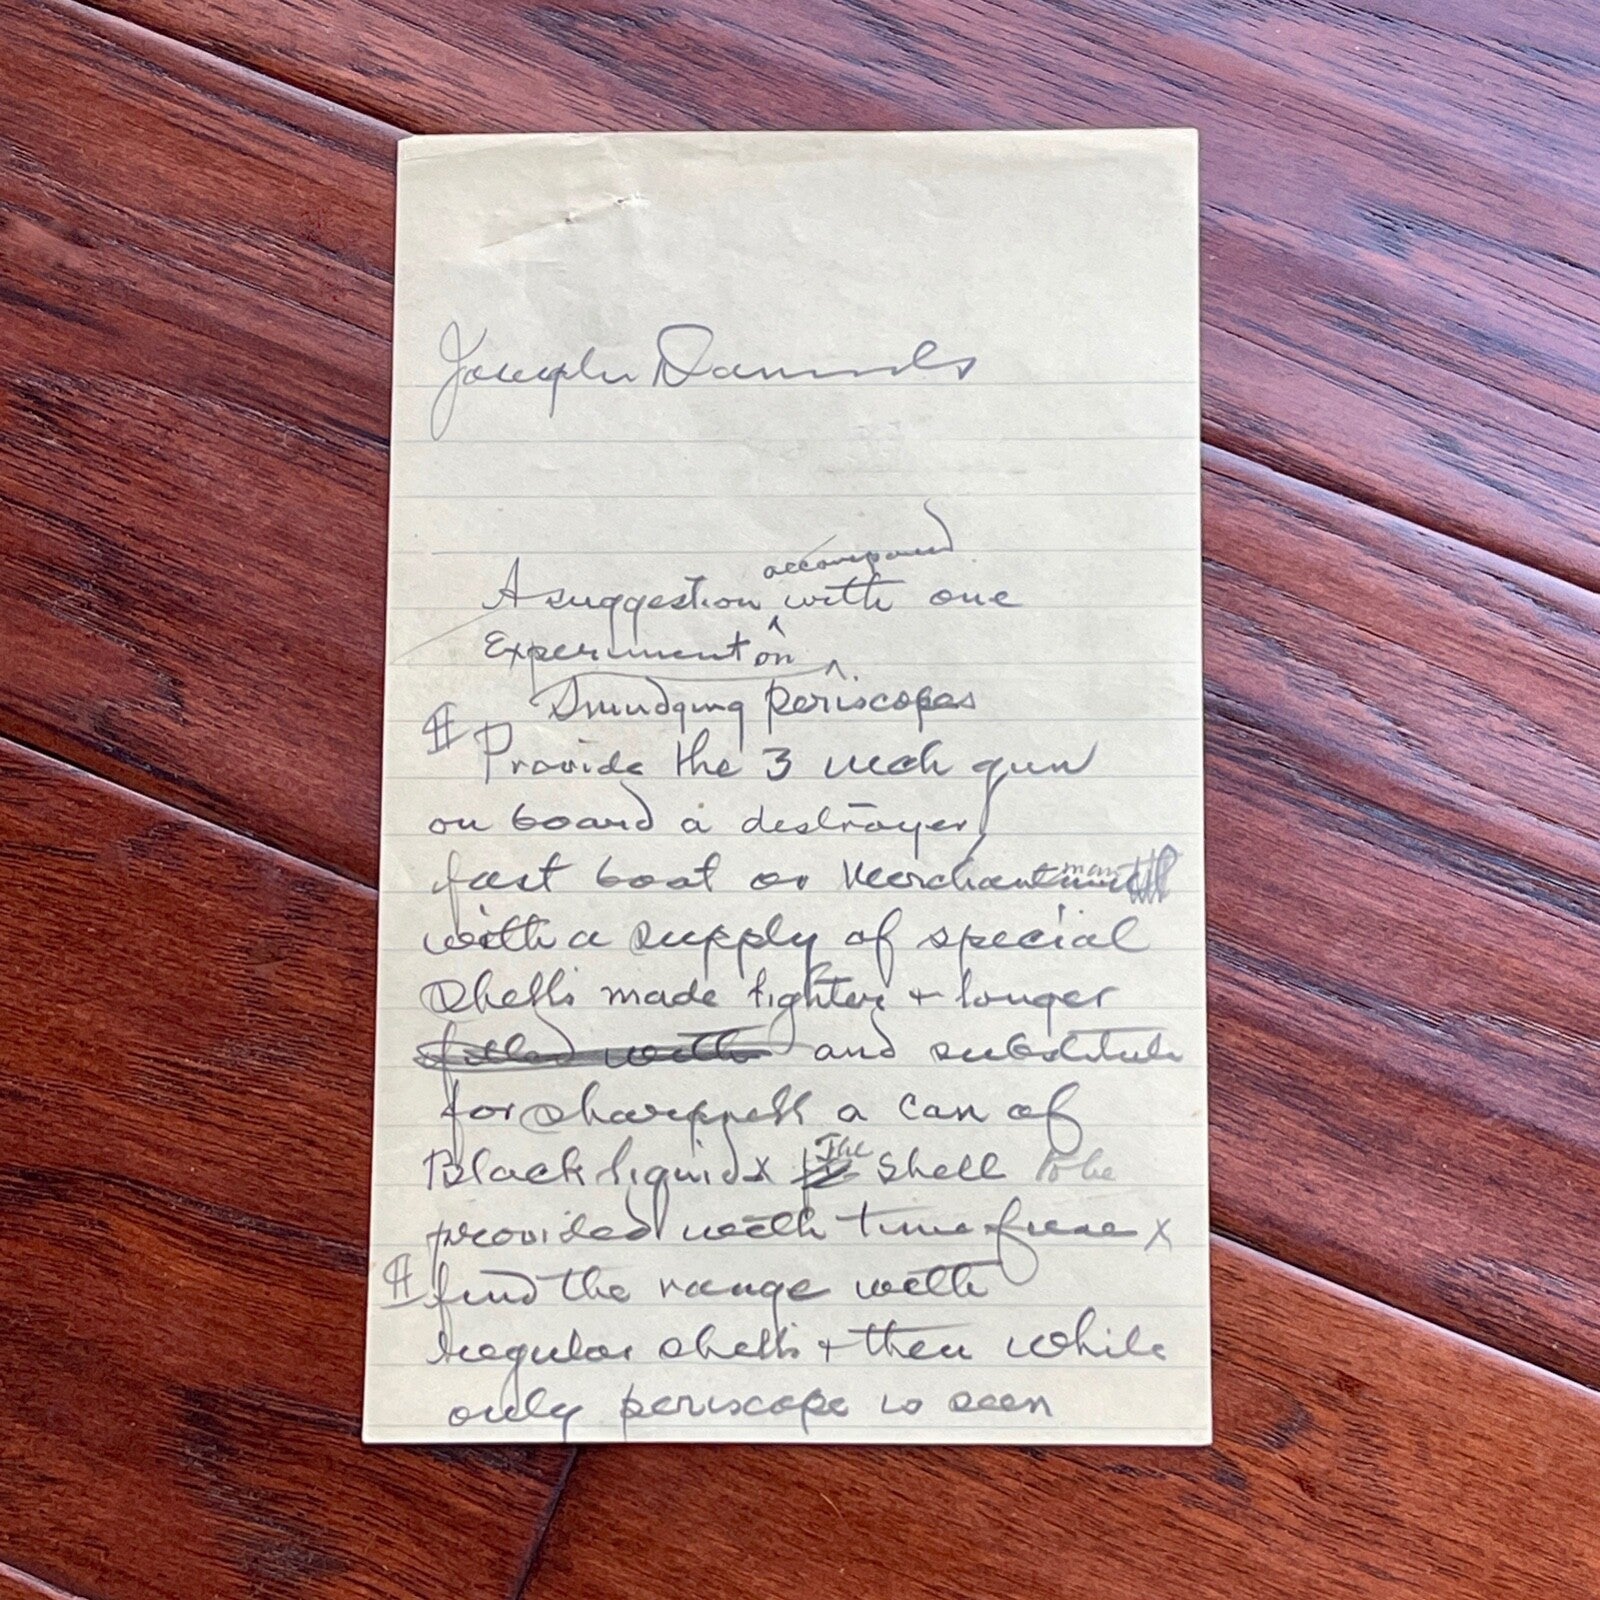 Joseph Daniels
accompanied
A suggestion with one
Experiment on
Smudging periscopes
Provide the 3 inch gun
on board a destroyer
fast boat or Merchantman
with a supply of special
Shells made lighter + longer
filled with and substitute
for sharpnell a can of
Black liquid x The Shell to be
provided with time fuse x
find the range with
regular shells + then while
only periscope is seen